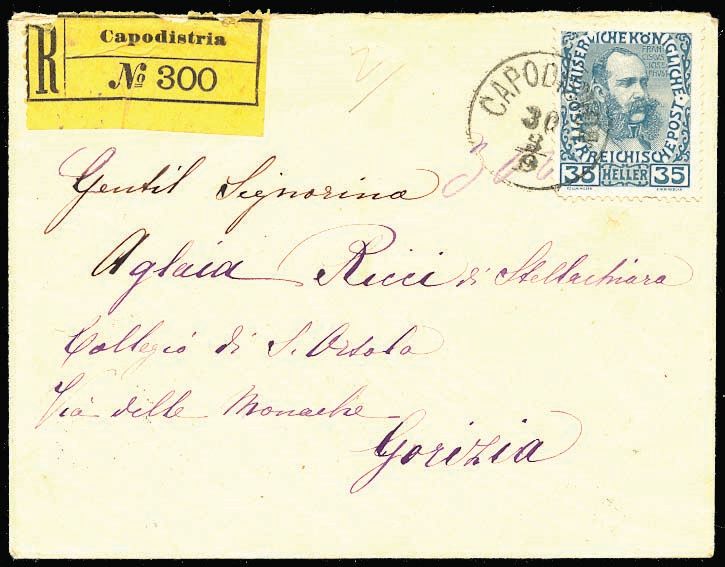 R
Capodistria
№ 300
KAISERLICHE KÖNIGLICHE
ÖSTERREICHISCHE POST
FRAN
CISCUS
JOSE
PHUS I
35 HELLER 35
CAPOD
30
3
9
Gentil Signorina
Aglaia Ricci di Stellachiara
Collegio di S. Orsola
Via delle Monache
Gorizia